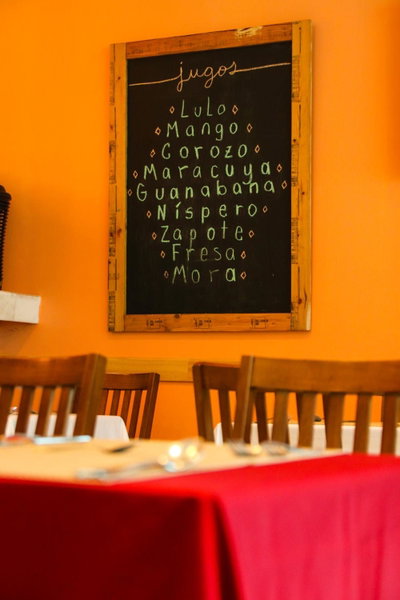 jugos
Lulo
Mango
Corozo
Maracuya
Guanabana
Níspero
Zapote
Fresa
Mora